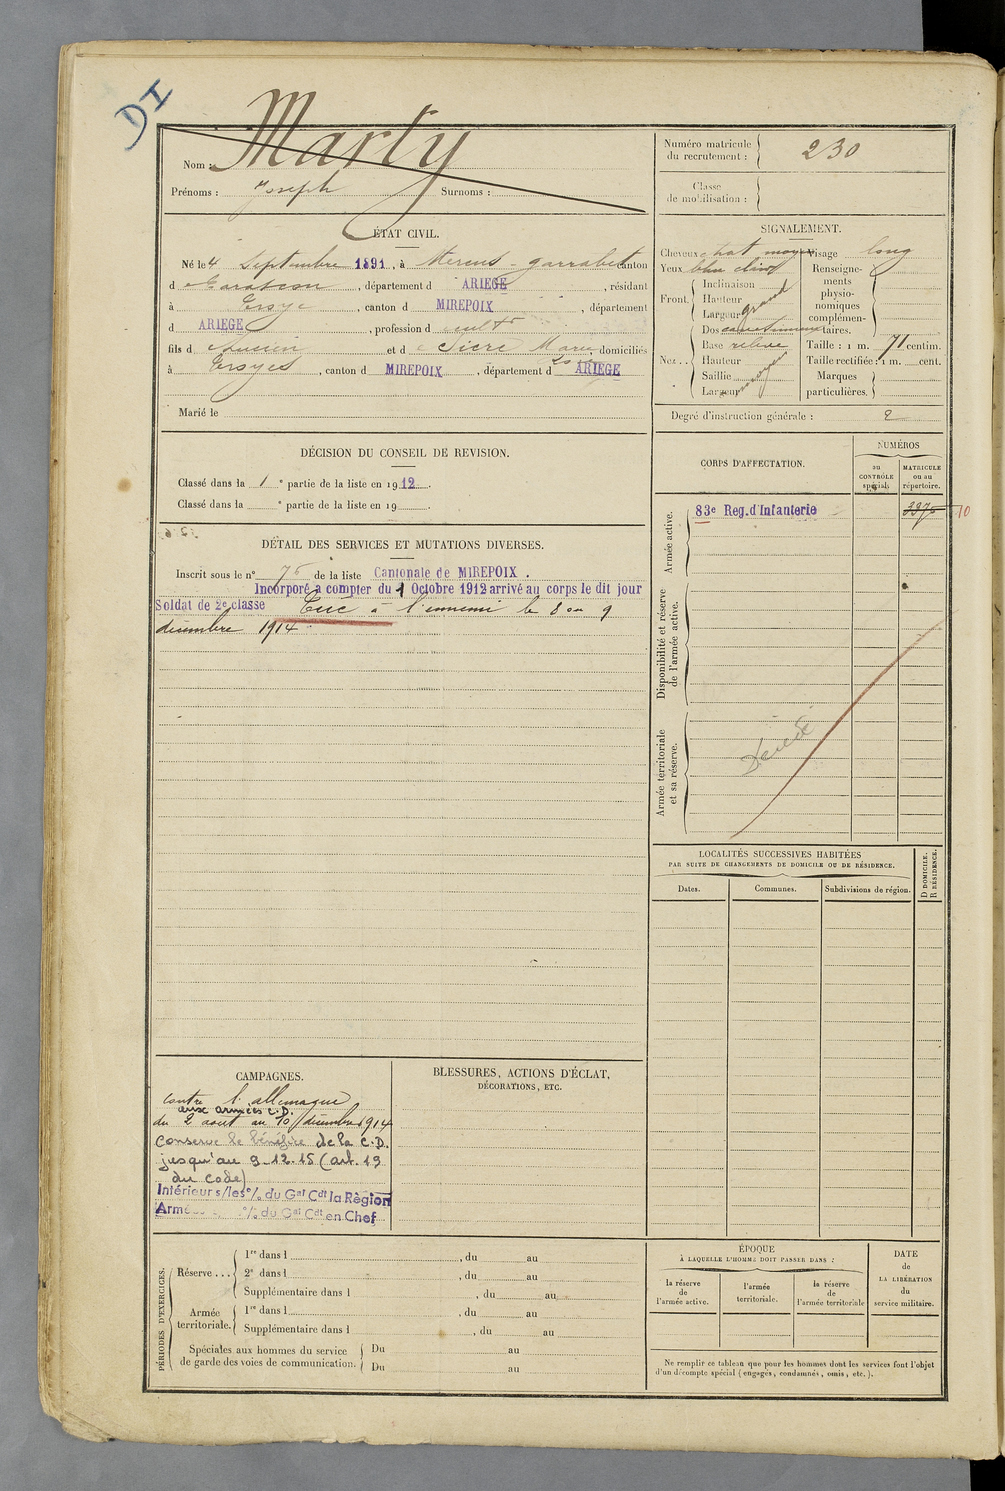 DI
Nom : Marty
Prénoms : Joseph Surnoms :
Numéro matricule du recrutement : 230
Classe de mobilisation :
ÉTAT CIVIL.
Né le 4 Septembre 1891, à Mercus-garrabet canton
d e Tarascon, département d ARIEGE, résidant
à, canton d MIREPOIX, département
d ARIEGE, profession d cultr
fils d e Lucien et d e Sicre Marie, domiciliés
à, canton d MIREPOIX, département d ARIEGE
Marié le
SIGNALEMENT.
Cheveux chat moyen Visage long
Yeux bleu clair Renseigne-
Front. Inclinaison ments
Hauteur physio-
Largeur grand nomiques
complémen-
Dos taires.
Nez.. Base relevé Taille : 1 m. 71 centim.
Hauteur Taille rectifiée : 1 m. cent.
Saillie Marques
Largeur moyen particulières.
Degré d'instruction générale : 2
DÉCISION DU CONSEIL DE REVISION.
Classé dans la 1 e partie de la liste en 1912.
Classé dans la e partie de la liste en 19
DÉTAIL DES SERVICES ET MUTATIONS DIVERSES.
Inscrit sous le n° 75 de la liste Cantonale de MIREPOIX.
Incorporé à compter du 1 Octobre 1912 arrivé au corps le dit jour
Soldat de 2e classe Tué à l'ennemi le 8 ou 9
décembre 1914
CORPS D'AFFECTATION.
NUMÉROS
au CONTRÔLE spécial.
MATRICULE ou au répertoire.
Armée active.
83e Reg. d'Infanterie 3375 10
Disponibilité et réserve de l'armée active.
Armée territoriale et sa réserve.
Décédé
LOCALITÉS SUCCESSIVES HABITÉES
PAR SUITE DE CHANGEMENTS DE DOMICILE OU DE RÉSIDENCE.
Dates. Communes. Subdivisions de région. D DOMICILE. R RÉSIDENCE.
CAMPAGNES.
contre l'allemagne
aux armées C.D.
du 2 aout au 10 décembre 1914
Conserve le bénéfice de la C.D.
jusqu'au 9-12-15 (art. 19
du code)
Intérieur s/les % du Gal Cdt la Région
Armées % du Gal Cdt en Chef
BLESSURES, ACTIONS D'ÉCLAT,
DÉCORATIONS, ETC.
PÉRIODES D'EXERCICES.
Réserve... 1re dans l , du au
2e dans l , du au
Supplémentaire dans l , du au
Armée territoriale. 1re dans l , du au
Supplémentaire dans l , du au
Spéciales aux hommes du service de garde des voies de communication. Du au
Du au
ÉPOQUE
À LAQUELLE L'HOMME DOIT PASSER DANS :
la réserve de l'armée active.
l'armée territoriale.
la réserve de l'armée territoriale
DATE de LA LIBÉRATION du service militaire.
Ne remplir ce tableau que pour les hommes dont les services font l'objet
d'un décompte spécial (engagés, condamnés, omis, etc.).